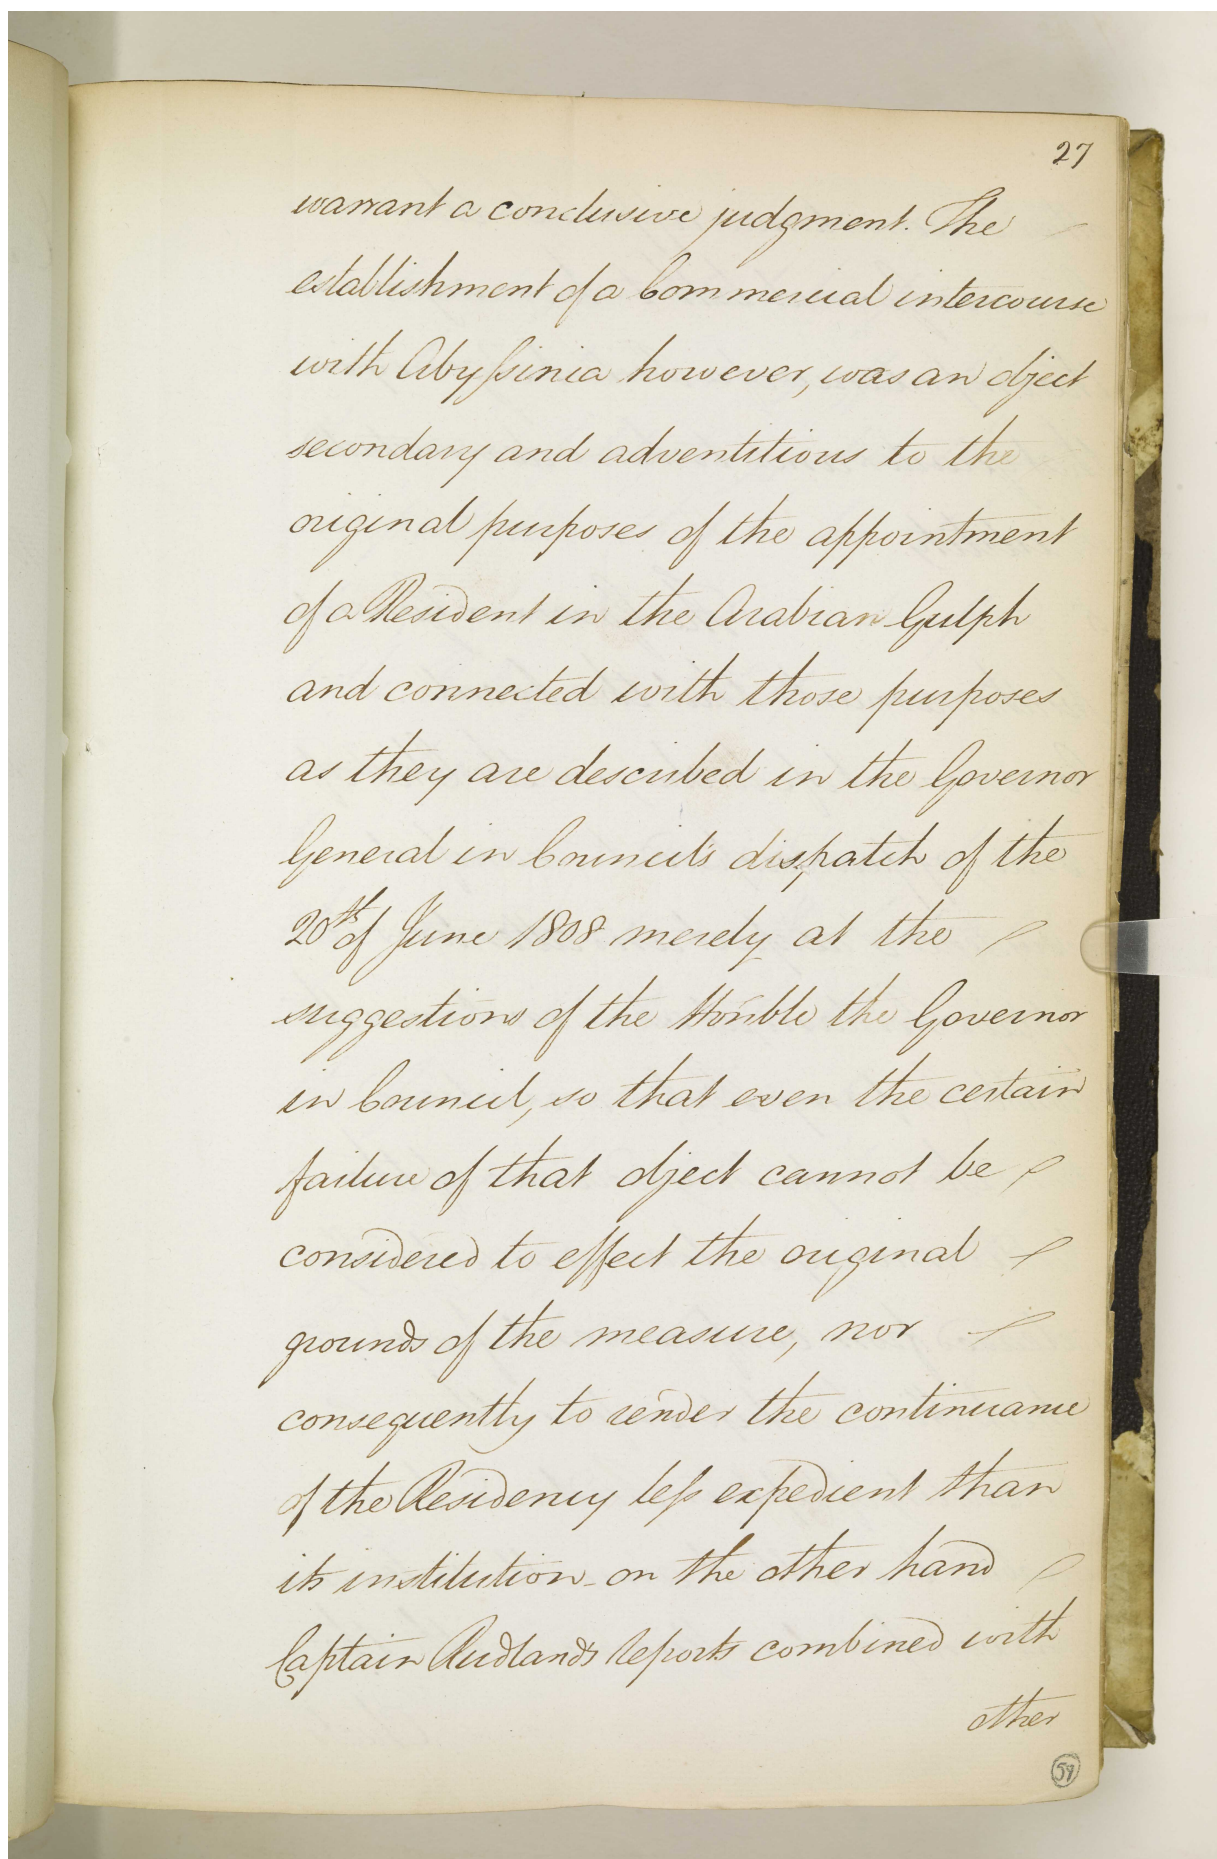 27
warrant a conclusive judgment. The
establishment of a Commercial intercourse
with Abyſsinia however, was an object
secondary and adventitious to the
original purposes of the appointment
of a Resident in the Arabian Gulph
and connected with those purposes
as they are described in the Governor
General in Council's dispatch of the
20th of June 1808 merely at the
suggestions of the Hon'ble the Governor
in Council, so that even the certain
failure of that object cannot be
considered to effect the original
grounds of the measure, nor
consequently to render the continuance
of the Residency leſs expedient than
its institution - on the other hand
Captain Rudland's reports combined with
other
59